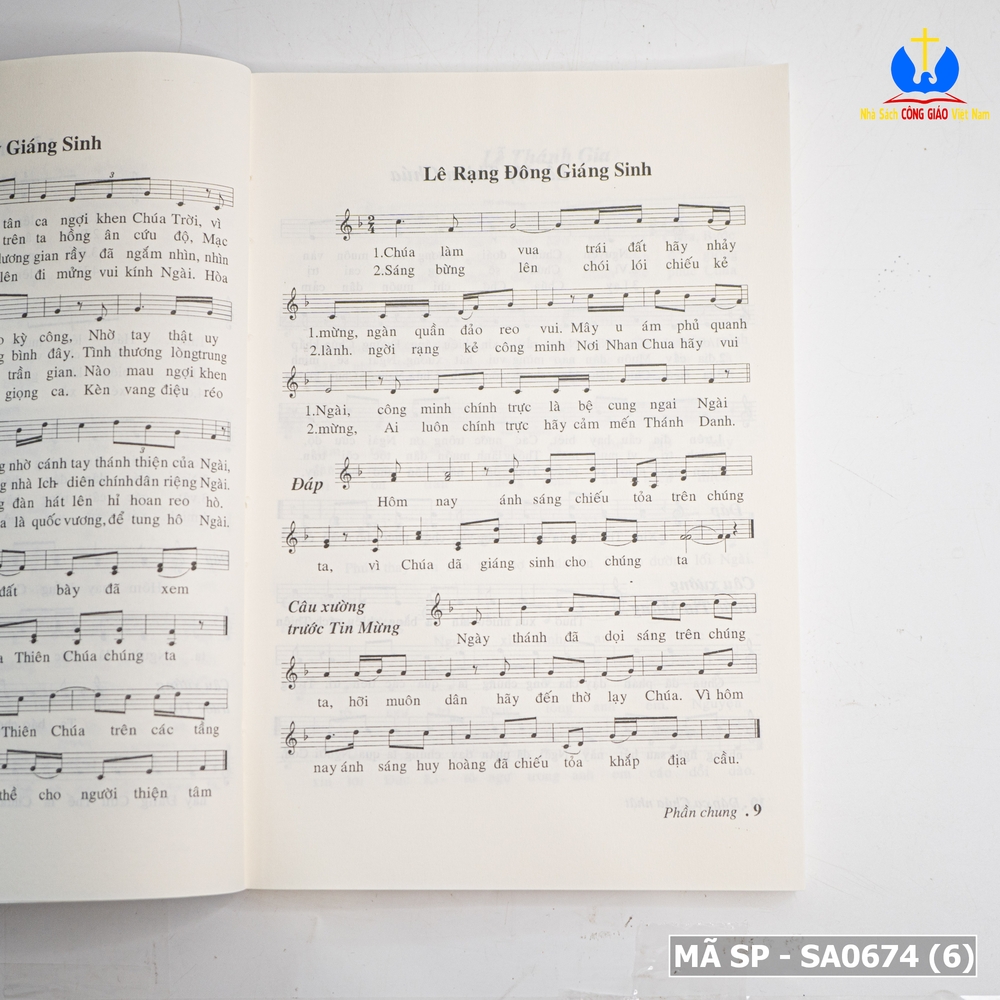 Nhà Sách CÔNG GIÁO Việt Nam
Giáng Sinh
3
tân ca ngợi khen Chúa Trời, vì
trên ta hồng ân cứu độ, Mạc
dương gian rầy đã ngắm nhìn, nhìn
lên đi mửng vui kính Ngài. Hòa
kỳ công, Nhờ tay thật uy
bình đây. Tình thương lòngtrung
trần gian. Nào mau ngợi khen
giọng ca. Kèn vang điệu réo
3
nhờ cánh tay thánh thiện của Ngài,
nhà Ich- diên chínhdân riêng Ngài.
đàn hát lên hỉ hoan reo hò.
là quốc vương, để tung hô Ngài.
đất bày đã xem
Thiên Chúa chúng ta
Thiên Chúa trên các tầng
thề cho người thiện tâm
Lê Rạng Đông Giáng Sinh
2
4
1.Chúa làm vua trái đất hãy nhảy
2.Sáng bừng lên chói lói chiếu kẻ
1.mừng, ngàn quần đảo reo vui. Mây u ám phủ quanh
2.lành. ngời rạng kẻ công minh Nơi Nhan Chua hãy vui
1.Ngài, công minh chính trực là bệ cung ngai Ngài
2.mừng, Ai luôn chính trực hãy cảm mến Thánh Danh.
Đáp
Hôm nay ánh sáng chiếu tỏa trên chúng
ta, vì Chúa dã giáng sinh cho chúng ta
Câu xường
trước Tin Mừng
Ngày thánh đã dọi sáng trên chúng
ta, hỡi muôn dân hãy đến thờ lạy Chúa. Vì hôm
nay ánh sáng huy hoàng đã chiếu tỏa khắp địa cầu.
Phần chung . 9
MÃ SP - SA0674 (6)